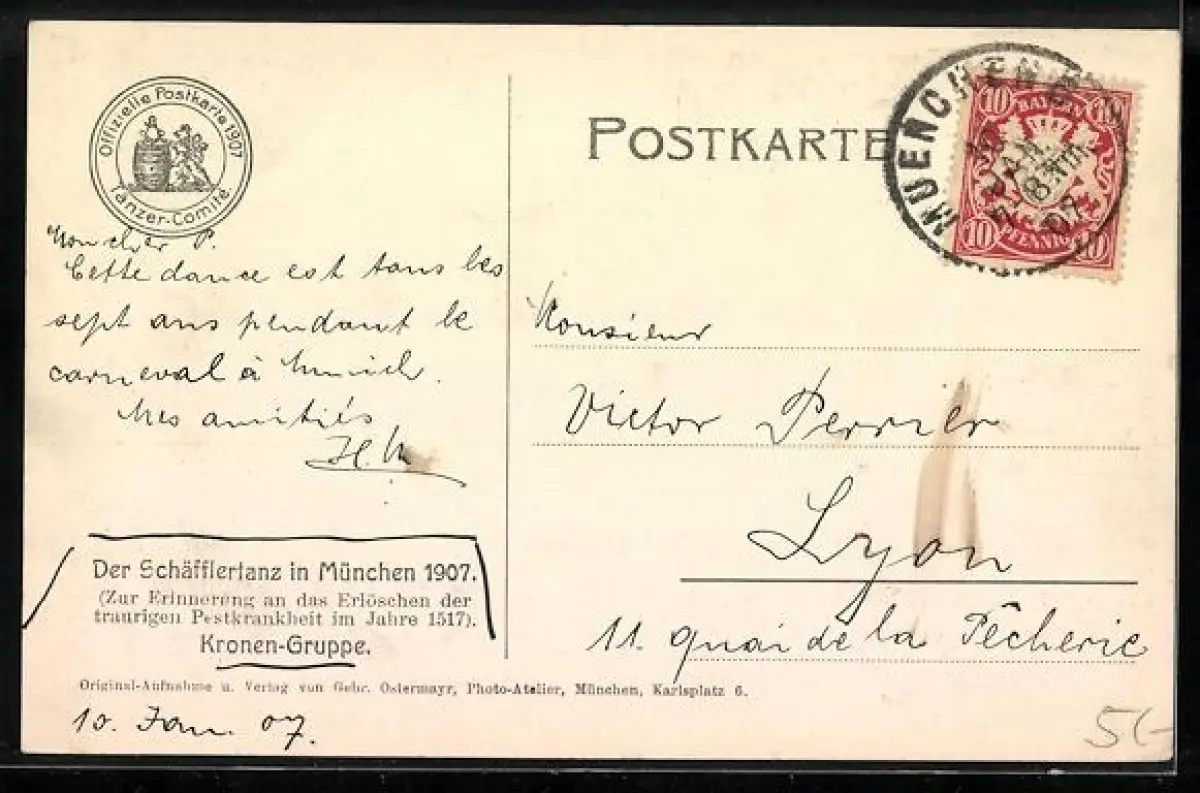 Offizielle Postkarte 1907
Tänzer-Comité
POSTKARTE
MUENCHEN
10 BAYERN 10
10 PFENNIG 10
JAN.
07
Mon cher P.
Cette dance est tous les
sept ans pendant le
carneval à Munich.
Mes amitiés
Monsieur
Victor Perrier
Lyon
11. quai de la Pêcherie
Der Schäfflertanz in München 1907.
(Zur Erinnerung an das Erlöschen der
traurigen Pestkrankheit im Jahre 1517).
Kronen-Gruppe.
Original-Aufnahme u. Verlag von Gebr. Ostermayr, Photo-Atelier, München, Karlsplatz 6.
10. Jan. 07.